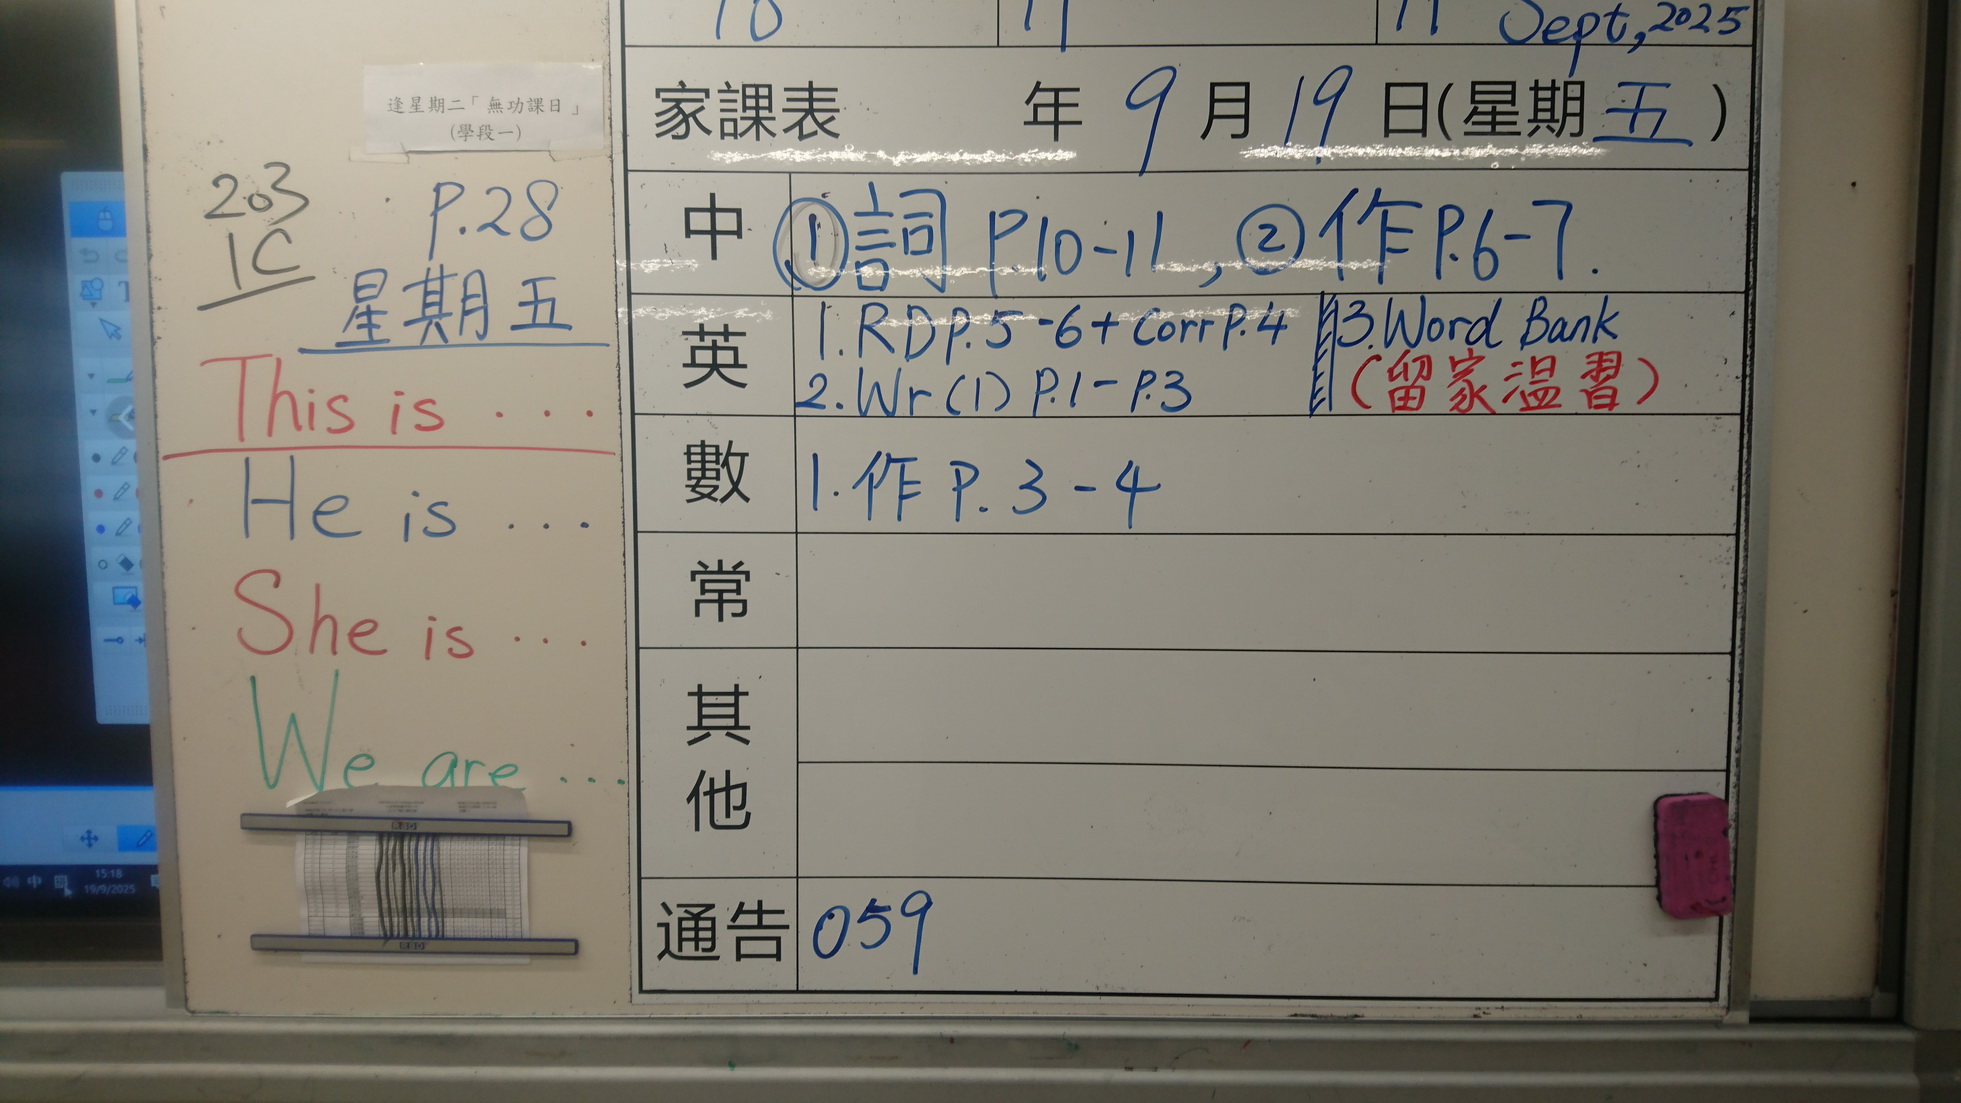 Sept, 2025
逢星期二「無功課日」
(學段一)
家課表 年 9 月 19 日(星期 五 )
203
1C
P.28
星期五
This is ...
He is ...
She is ...
We are ...
中 ①詞 P.10-11, ②作 P.6-7.
英 1. RD P.5-6 + corr P.4 3. Word Bank
2. Wr (1) P.1 - P.3 (留家溫習)
數 1. 作 P. 3-4
常
其他
通告 059
中
15:18
19/9/2025